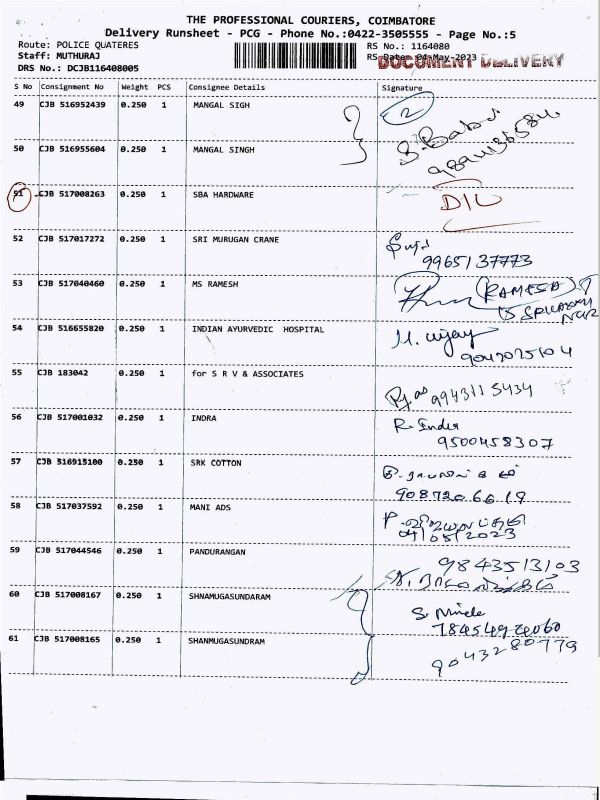 THE PROFESSIONAL COURIERS, COIMBATORE
Delivery Runsheet - PCG - Phone No.:0422-3505555 - Page No.:5
Route: POLICE QUATERES
RS No.: 1164080
Staff: MUTHURAJ
RS Date: 04-May-2023
DOCUMENT DELIVERY
DRS No.: DCJB116408005
S No Consignment No Weight PCS Consignee Details Signature
49 CJB 516952439 0.250 1 MANGAL SIGH
2
50 CJB 516955604 0.250 1 MANGAL SINGH
S. Babu
51 CJB 517008263 0.250 1 SBA HARDWARE
D/L
52 CJB 517017272 0.250 1 SRI MURUGAN CRANE
9965137773
53 CJB 517040460 0.250 1 MS RAMESH
54 CJB 516655820 0.250 1 INDIAN AYURVEDIC HOSPITAL
9042025104
55 CJB 183042 0.250 1 for S R V & ASSOCIATES
9943115434
56 CJB 517001032 0.250 1 INDRA
R. Indra
9500458307
57 CJB 516913100 0.250 1 SRK COTTON
9087206619
58 CJB 517037592 0.250 1 MANI ADS
04/05/2023
59 CJB 517044546 0.250 1 PANDURANGAN
9843513103
60 CJB 517008167 0.250 1 SHNAMUGASUNDARAM
61 CJB 517008165 0.250 1 SHANMUGASUNDRAM
9043280779